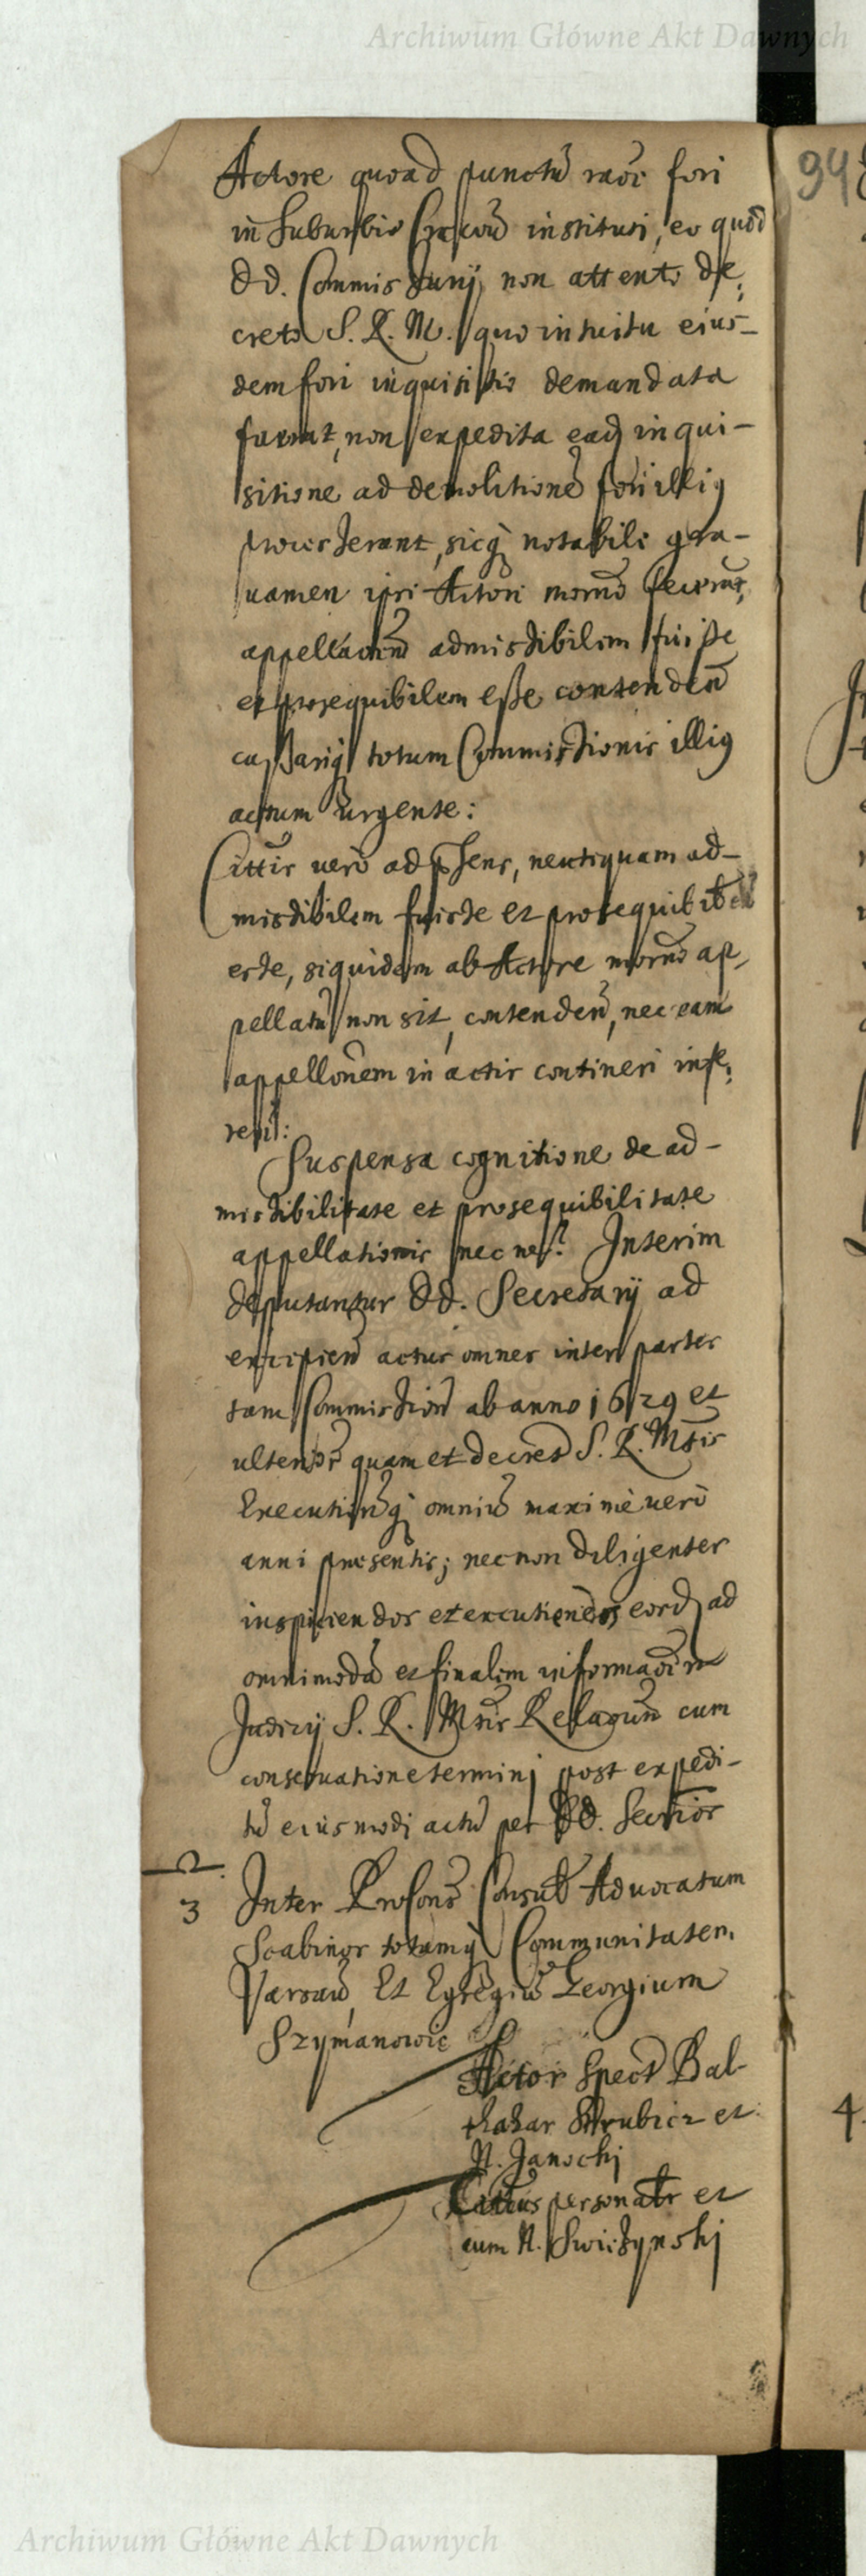 Archiwum Główne Akt Dawnych
Actore quoad punctū raōe fori
in Suburbio Cracoū instituti, eo quōd
DD. Commissarij non attento de,
creto S. R. M. quo intuitu eius-
dem fori inquisitio demandata
fuerat, non expedita ead inqui-
sitione ad demolitionē fori illiq
processerant, sicq notabile gra-
uamen ipsi Actori mornō fecerūt,
appellaōnē admissibilem fuisse
et prosequibilem esse contendeñ
cassariq totum Commissionis illiq
actum urgente:
Cittīs uerò ad pñsens, neutiquam ad-
missibilem fuisse et prosequibilē
esse, siquidem ab Actore mornō ap,
pellatū non sit, contendeñ, nec eam
appellonem in actis contineri infe,
reñ:
Suspensa cognitione de ad-
missibilitate et prosequibilitate
appellationis necne? Interim
deputantur DD. Secretarij ad
excipieñ actus omnes inter partes
tam Commissioñ ab anno 1629 et
ulterior quam et decret S. R. Mtis
Executionq omniū maximè uerò
anni presentis; necnon diligenter
inspiciendos et excutiendos eord ad
omnimodā et finalem informaōem
Judicij S. R. Mtis Relaōnū cum
conseruatione termini post expedi-
tū eiusmodi actū per DD. Secrrios
94
3 Inter Procons Consul Aduocatum
Scabinos totamq Communitatem
Varsaū, Et Egregiū Georgium
Szymanowic
Actor Spect Bal-
thazar Strubicz et
N. Janocki
Cittus personatr et
cum N. Swiezynski
4
Archiwum Główne Akt Dawnych